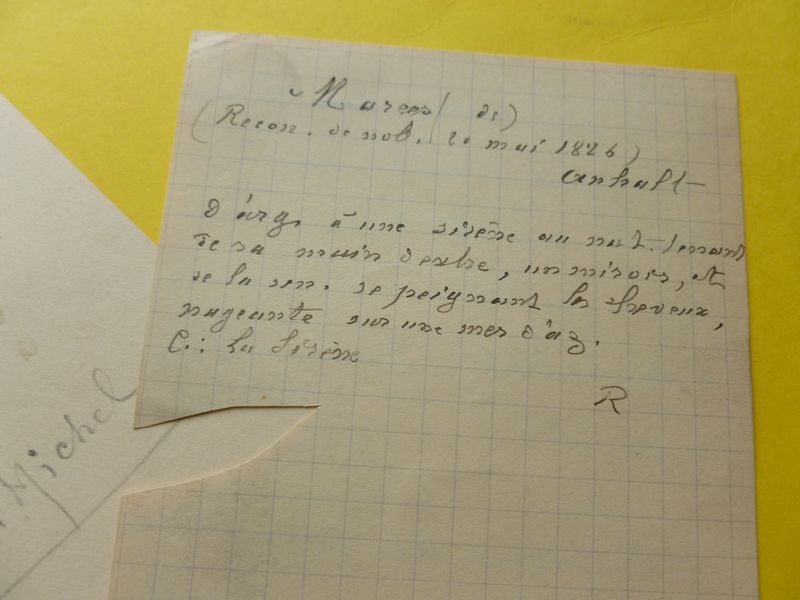 Marees (de)
(Recon. de nob. 20 mai 1826)
Anhalt
D'arg. à une sirène au nat. tenant
de sa main dextre, un miroir, et
de la sen. se peignant les cheveux,
nageante sur une mer d'az.
C.: la sirène
R
Michel